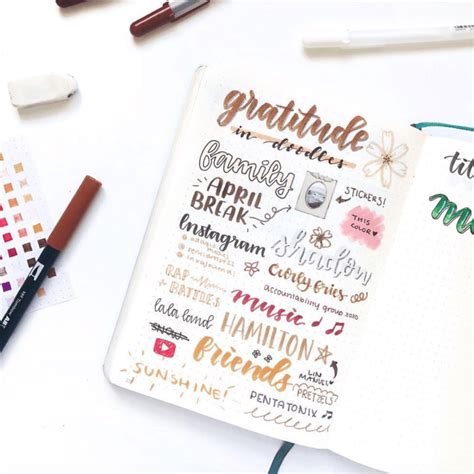 gratitude
in doodles
family
STICKERS!
APRIL
BREAK
THIS
COLOR
Instagram
shadow
curly fries
accountability group
RAP
BATTLES
music
lala land
HAMILTON
LIN
MANUEL
friends
PRETZELS
SUNSHINE!
PENTATONIX
til